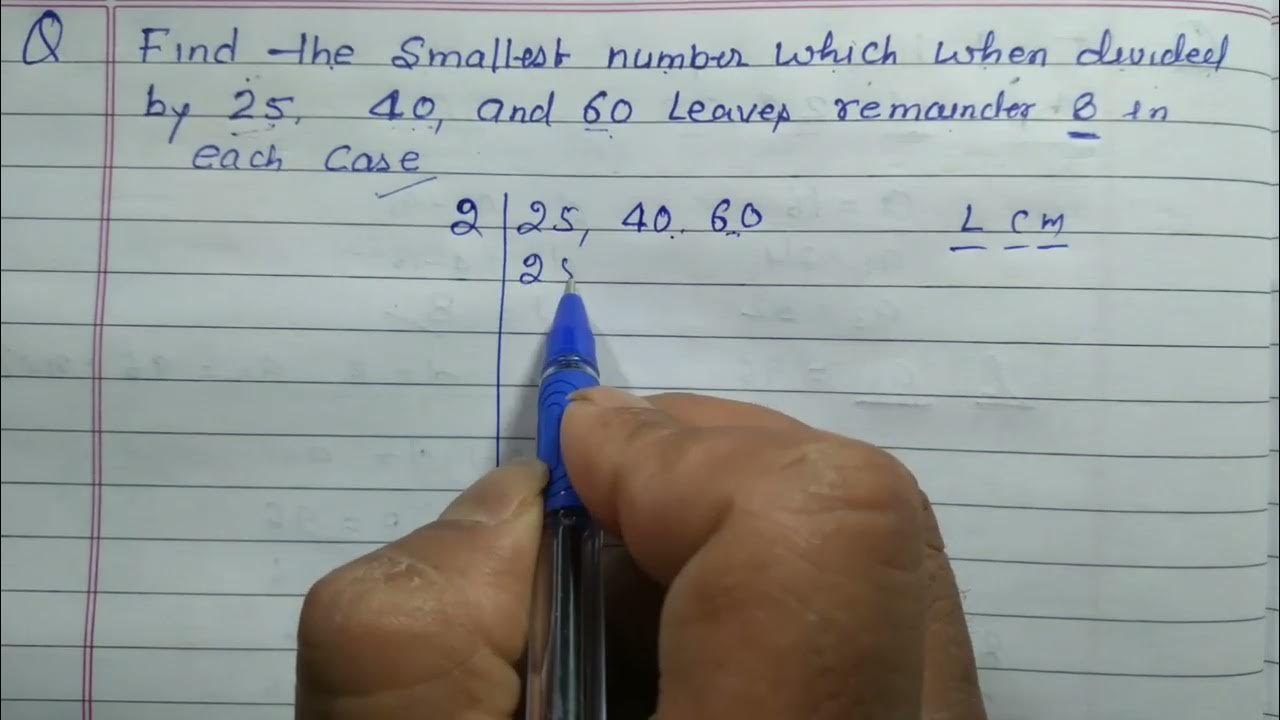 Q Find the smallest number which when divided
by 25, 40, and 60 leaves remainder 8 in
each case
2 25, 40. 60 L C M
25